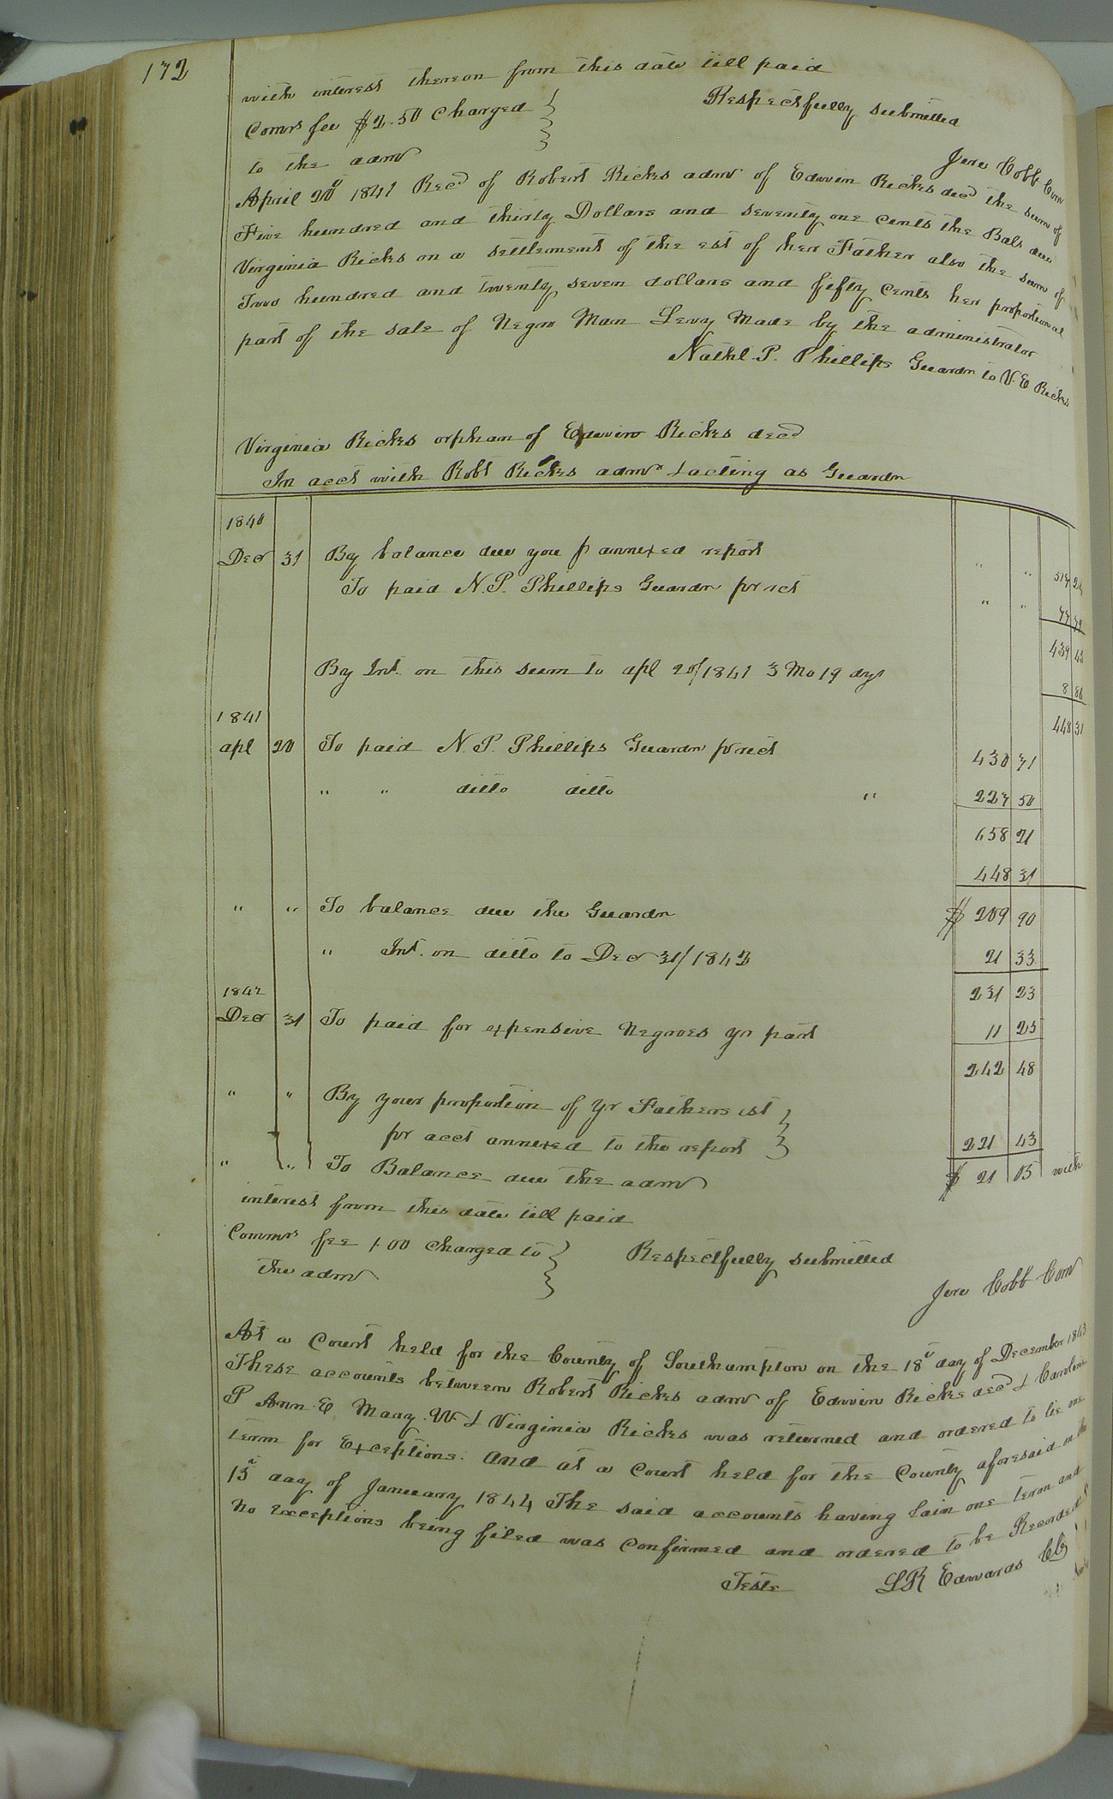 172
with interest thereon from this date till paid
Comrs fee $2.50 Charged } Respectfully submitted
to the admr
Jere Cobb Comr
April 20th 1841 Recd of Robert Ricks admr of Edwin Ricks decd the sum of
Five hundred and thirty Dollars and seventy one cents the Bals due
Virginia Ricks on a settlement of the est of her Father also the sum of
Two hundred and twenty seven dollars and fifty cents her proportional
part of the sale of Negro Man Levy Made by the administrator
Nathl. P. Phillips Guardn to V. E Ricks
Virginia Ricks orphan of Edwin Ricks decd
In acct with Robt Ricks admr & acting as Guardn
1840
Decr 31 By balance due you p annexed report " "
To paid N. P. Phillips Guardn pr rct " "
439 45
By Int. on this sum to apl 20/1841 3 Mo 19 dys 8 86
1841 448 31
apl 20 To paid N. P. Phillips Guardn pr rect 430 71
" " ditto ditto " 227 50
658 21
448 31
" " To balance due the Guardn $ 209 90
" Int. on ditto to Decr 31/1842 21 33
1842 231 23
Decr 31 To paid for expensive Negroes yr part 11 25
242 48
" " By your proportion of yr Fathers est }
pr acct annexed to the report } 221 43
" " To Balance due the admr $ 21 05 with
interest from this date till paid
Commrs fee 1.00 Charged to } Respectfully submitted
the admr
Jere Cobb Com
At a Court held for the County of Southampton on the 18th day of December 1843
These accounts between Robert Ricks admr of Edwin Ricks decd & Caroline
P Ann E Mary W & Virginia Ricks was returned and ordered to lie one
term for Exceptions. And at a Court held for the County aforesaid on the
15th day of January 1844 The said accounts having lain one term and
no exceptions being filed was confirmed and ordered to be Recorded
Teste L R Edwards CC